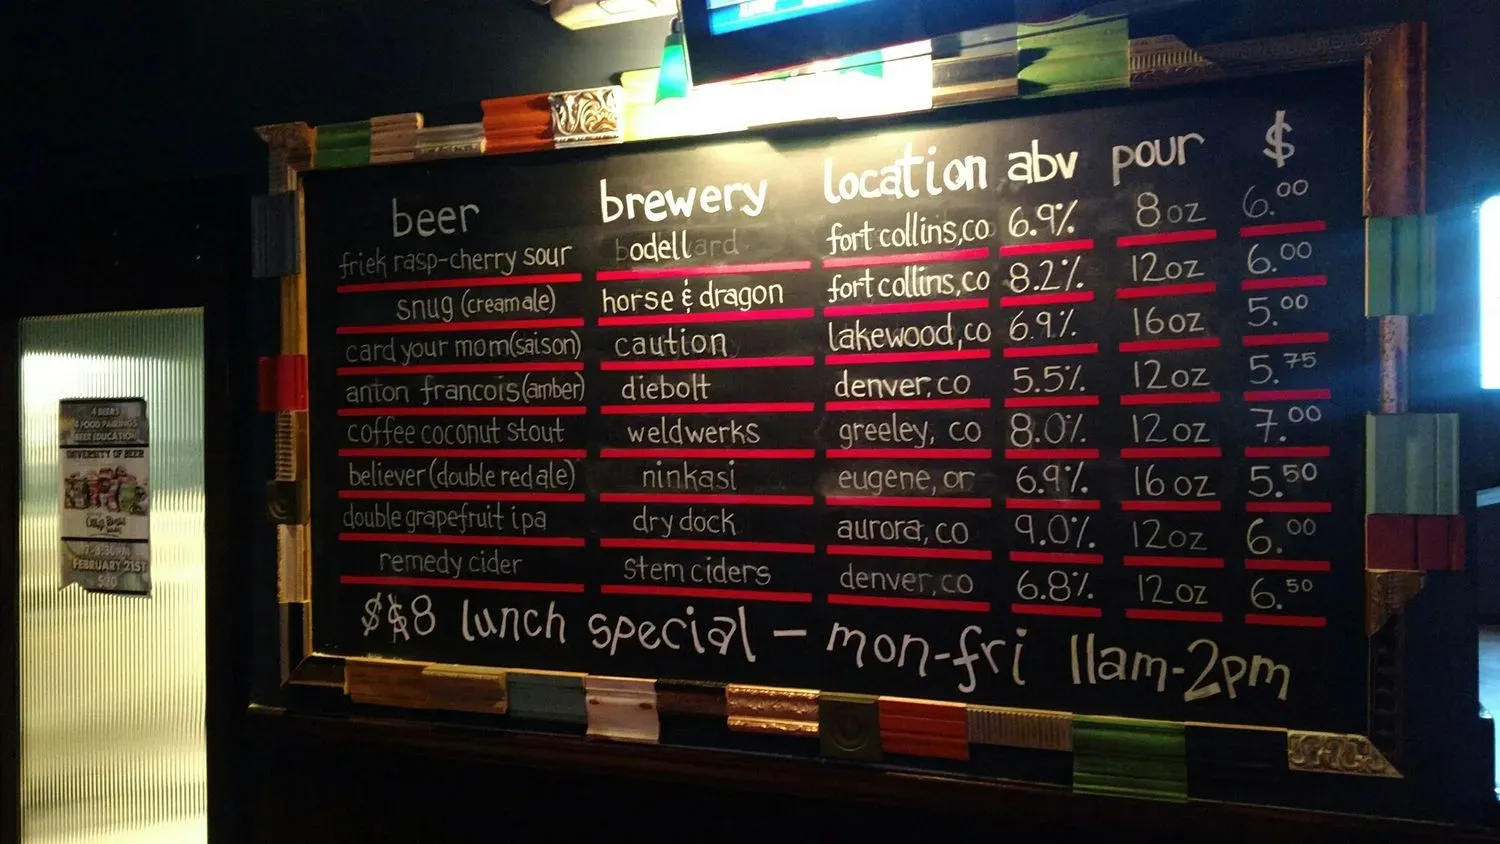 beer brewery location abv pour $
friek rasp-cherry sour odell fort collins,co 6.9% 8oz 6.00
snug (cream ale) horse & dragon fort collins,co 8.2% 12oz 6.00
card your mom(saison) caution lakewood,co 6.9% 16oz 5.00
anton francois(amber) diebolt denver,co 5.5% 12oz 5.75
coffee coconut stout weldwerks greeley, co 8.0% 12oz 7.00
believer(double red ale) ninkasi eugene, or 6.9% 16oz 5.50
double grapefruit ipa dry dock aurora, co 9.0% 12oz 6.00
remedy cider stem ciders denver,co 6.8% 12oz 6.50
$$8 lunch special – mon-fri 11am-2pm
4 BEERS
4 FOOD PAIRINGS
BEER EDUCATION
UNIVERSITY OF BEER
FEBRUARY 21ST
$20